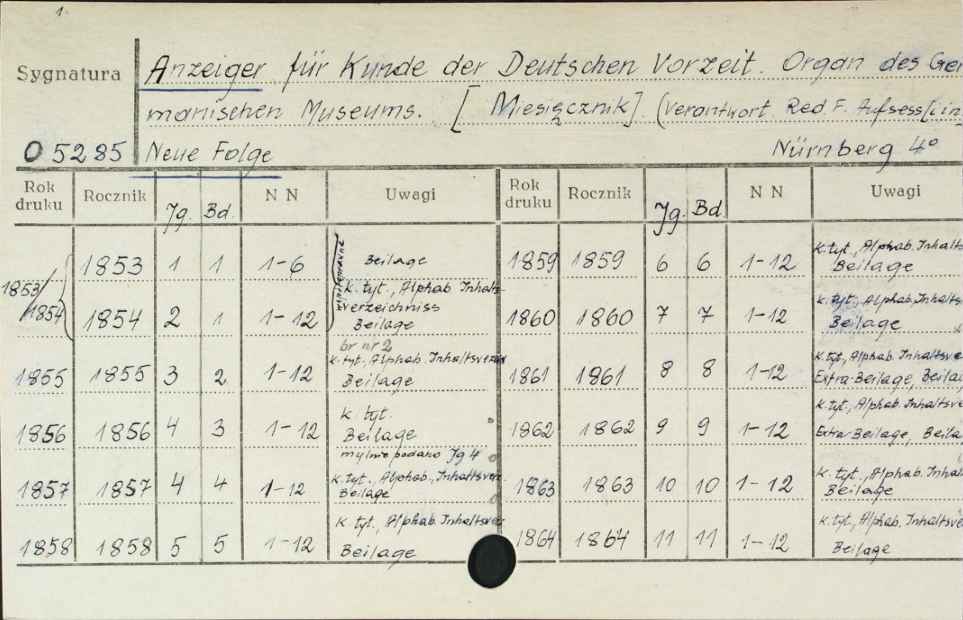 1.
Sygnatura
Anzeiger für Kunde der Deutschen Vorzeit. Organ des Ger
manischen Museums. [Miesięcznik]. (Verantwort. Red. F. Aufsess [i in
O 5285 Neue Folge Nürnberg 4°
Rok druku Rocznik Jg. Bd. NN Uwagi Rok druku Rocznik Jg. Bd. NN Uwagi
1853/1854
1853 1 1 1-6 Beilage
1854 2 1 1-12 k. tyt., Alphab. Inhalts-
verzeichniss
Beilage
br nr 2
1855 1855 3 2 1-12 k. tyt., Alphab. Inhaltsverz
Beilage
1856 1856 4 3 1-12 k. tyt.
Beilage
mylnie podano Jg 4
1857 1857 4 4 1-12 k. tyt., Alphab. Inhaltsverz
Beilage
1858 1858 5 5 1-12 k. tyt., Alphab. Inhaltsver
Beilage
1859 1859 6 6 1-12 k. tyt., Alphab. Inhalts
Beilage
1860 1860 7 7 1-12 k. tyt., Alphab. Inhalts
Beilage
1861 1861 8 8 1-12 k. tyt., Alphab. Inhaltsve
Extra-Beilage, Beila
1862 1862 9 9 1-12 k. tyt., Alphab. Inhaltsve
Extra-Beilage, Beila
1863 1863 10 10 1-12 k. tyt., Alphab. Inhal
Beilage
1864 1864 11 11 1-12 k. tyt., Alphab. Inhaltsve
Beilage